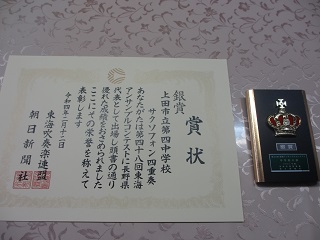 賞状
銀賞
サクソフォン四重奏
上田市立第四中学校
あなたがたは第四十八回東海
アンサンブルコンテストに長野県
代表として出場し頭書の通り
優れた成績をおさめられました
ここにその栄誉を称えて
表彰します
令和四年二月十二日
東海吹奏楽連盟
朝日新聞社